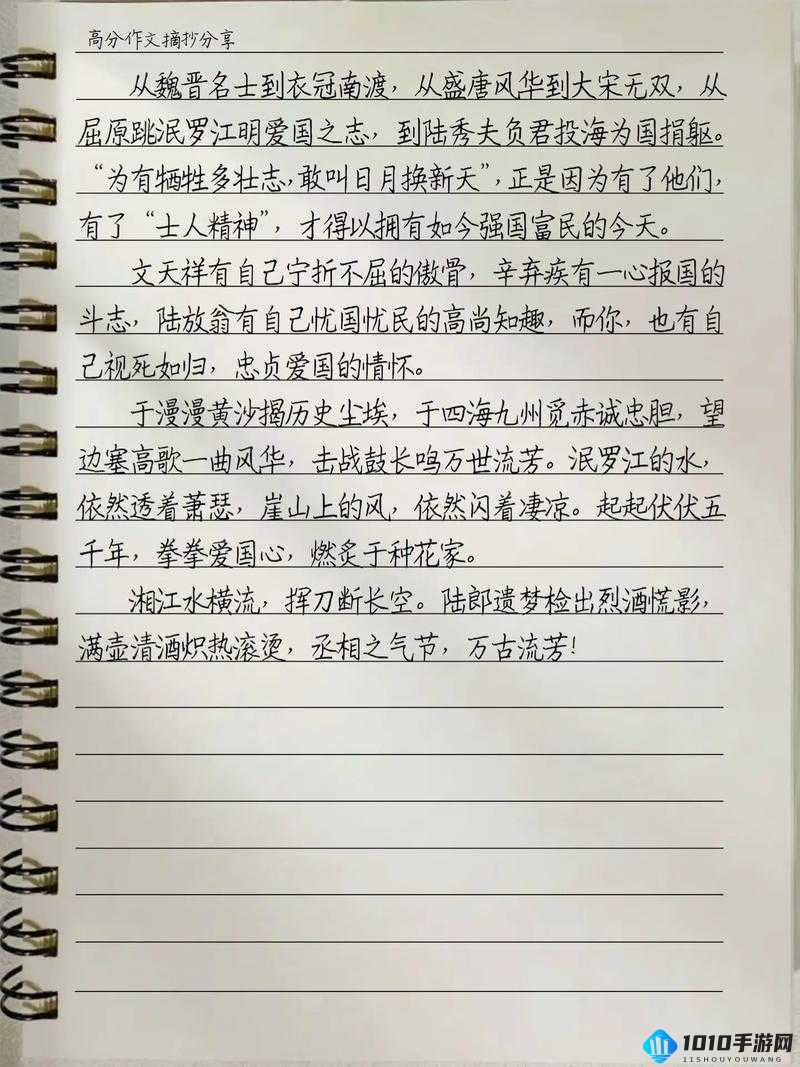 高分作文摘抄分享
从魏晋名士到衣冠南渡，从盛唐风华到大宋无双，从
屈原跳泯罗江明爱国之志，到陆秀夫负君投海为国捐躯。
“为有牺牲多壮志，敢叫日月换新天”，正是因为有了他们，
有了“士人精神”，才得以拥有如今强国富民的今天。
文天祥有自己宁折不屈的傲骨，辛弃疾有一心报国的
斗志，陆放翁有自己忧国忧民的高尚知趣，而你，也有自
己视死如归，忠贞爱国的情怀。
于漫漫黄沙揭历史尘埃，于四海九州觅赤诚忠胆，望
边塞高歌一曲风华，击战鼓长鸣万世流芳。泯罗江的水，
依然透着萧瑟，崖山上的风，依然闪着凄凉。起起伏伏五
千年，拳拳爱国心，燃炙于种花家。
湘江水横流，挥刀断长空。陆郎遗梦检出烈酒慌影，
满壶清酒炽热滚烫，丞相之气节，万古流芳！
1010手游网
11SHOUYOUWANG